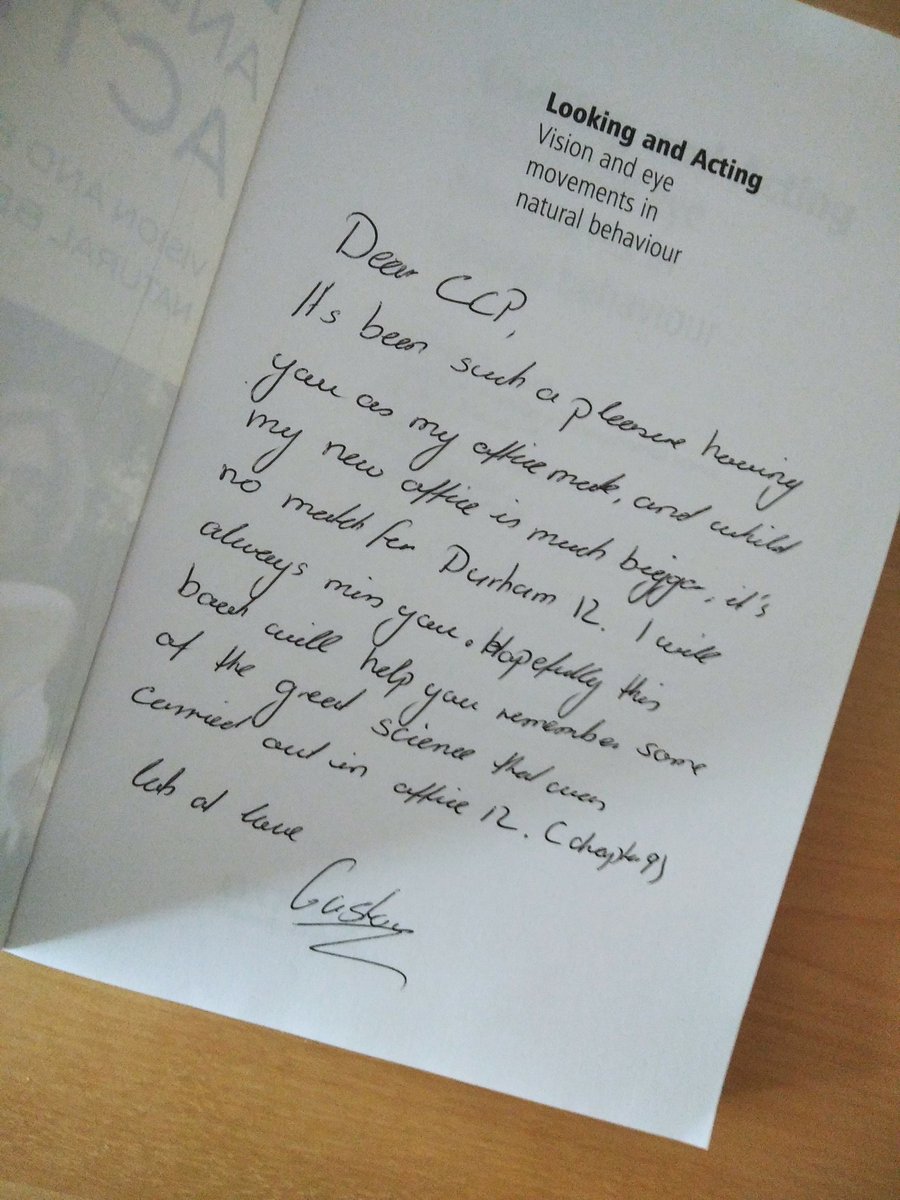 Looking and Acting
Vision and eye
movements in
natural behaviour
Dear CCP,
It's been such a pleasure having
you as my office mate, and whilst
my new office is much bigger, it's
no match for Durham 12. I will
always miss you. Hopefully this
book will help you remember some
of the great science that was
carried out in office 12. (chapter 9)
lots of love
Gustav